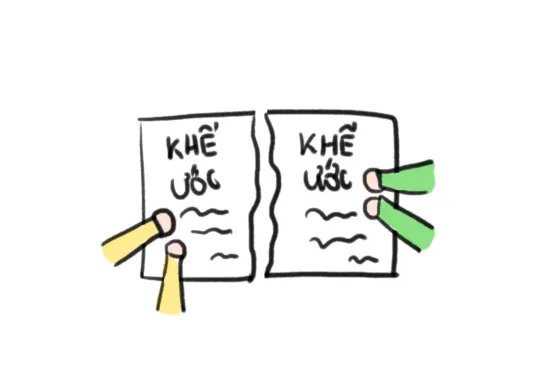 KHẾ
ƯỚC
KHẾ
ƯỚC